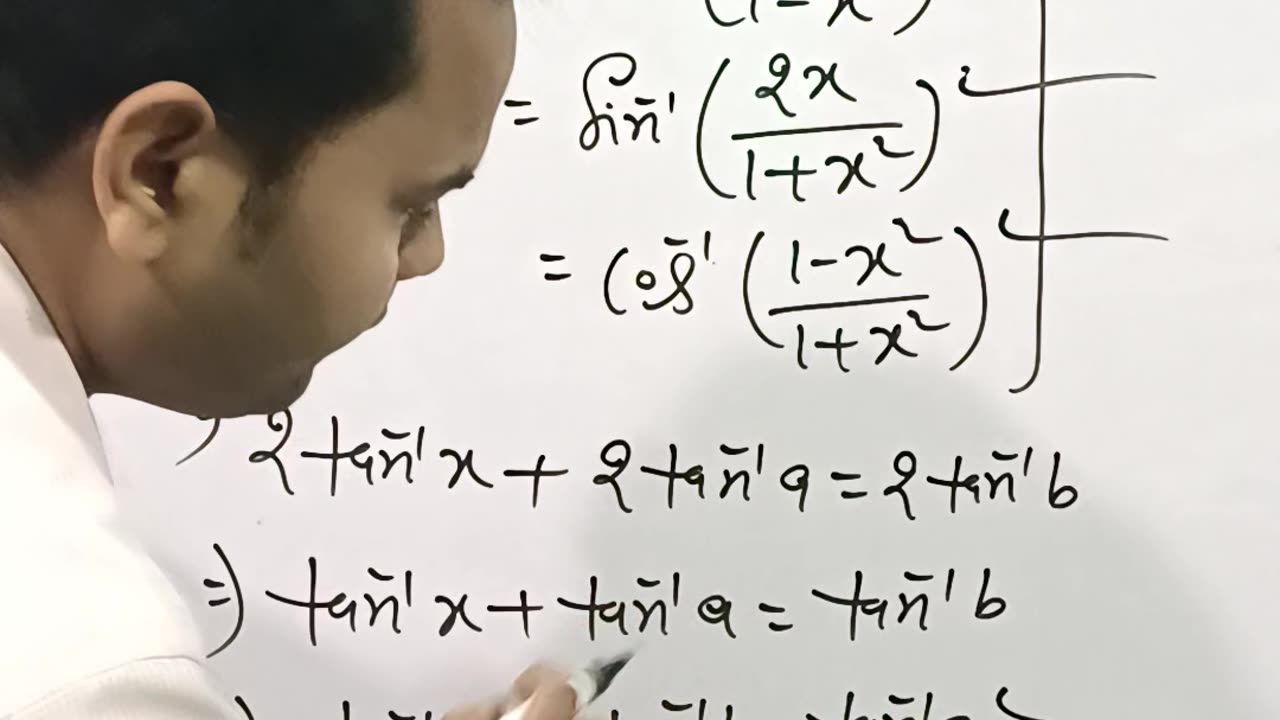 (1-x)
= sin⁻¹ (2x / 1+x²)
= cos⁻¹ (1-x² / 1+x²)
2 tan⁻¹ x + 2 tan⁻¹ a = 2 tan⁻¹ b
=) tan⁻¹ x + tan⁻¹ a = tan⁻¹ b